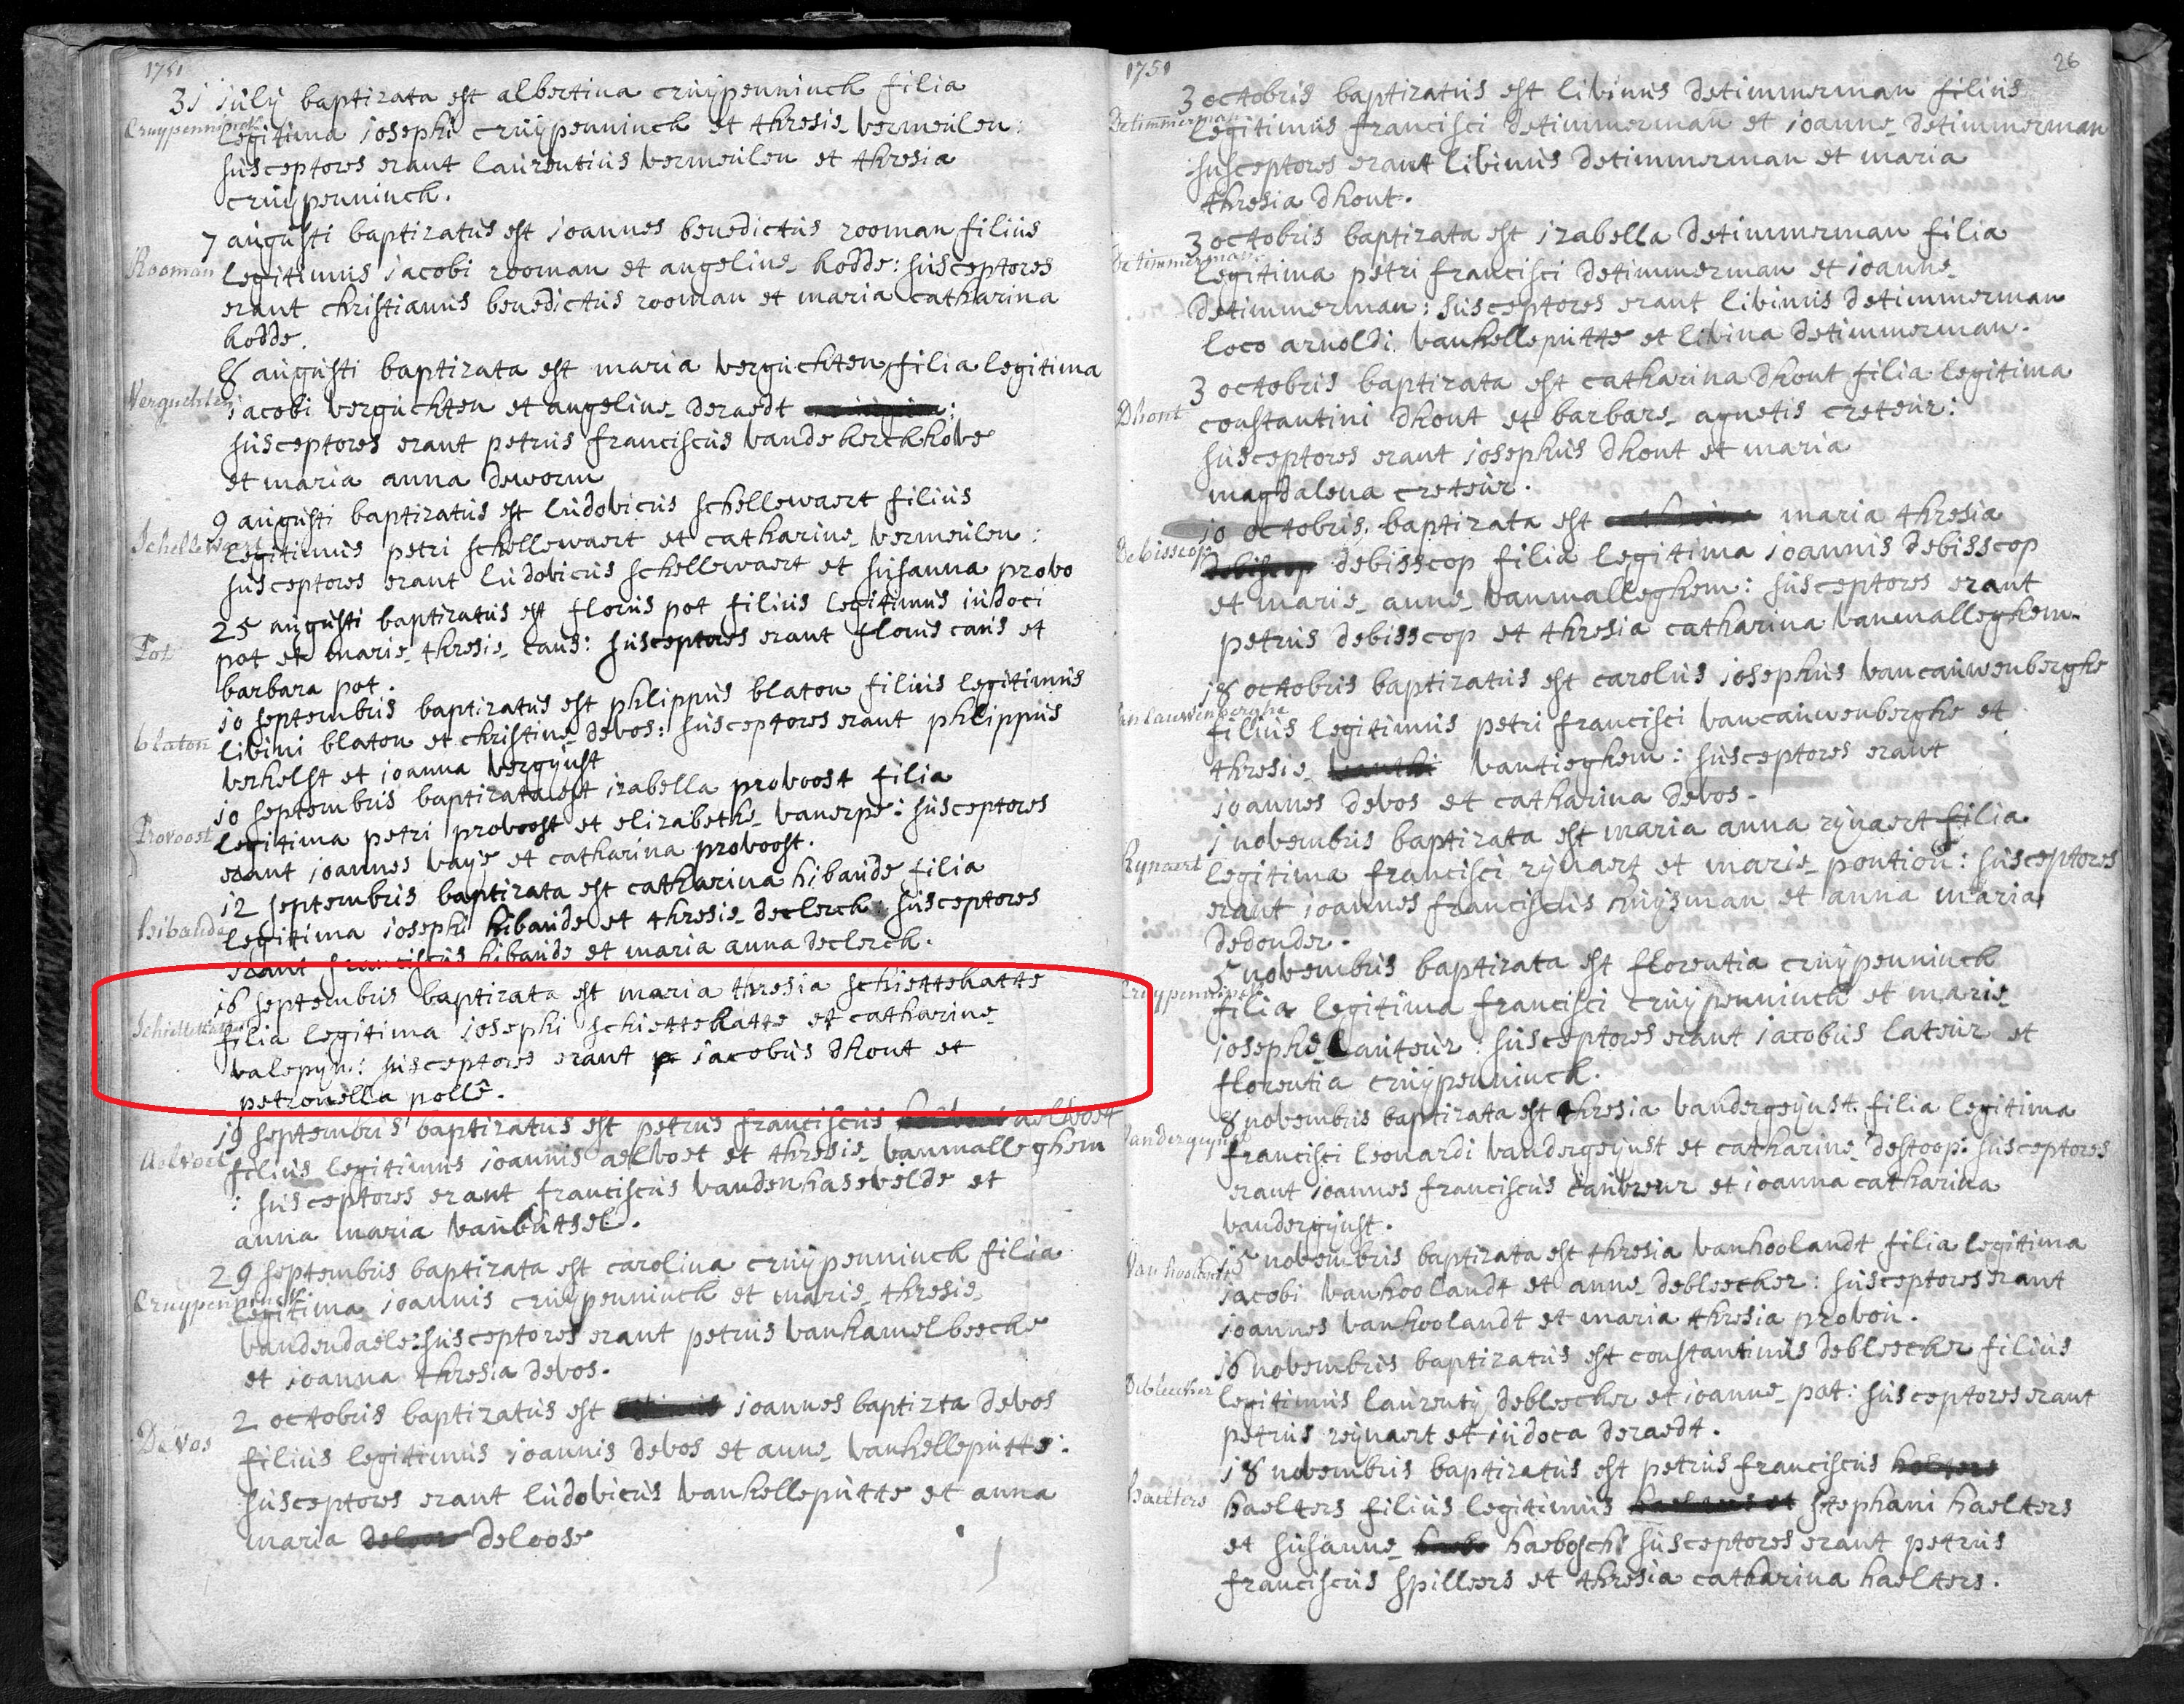 1751
31 july baptizata est albertina cruypenninck filia
Cruypenninck
legitima josephi cruypenninck et thresie vermeulen:
susceptores erant laurentius vermeulen et thresia
cruypenninck.
7 augusti baptizatus est joannes benedictus rooman filius
Rooman
legitimus jacobi rooman et angeline kodde: susceptores
erant christianus benedictus rooman et maria catharina
kodde.
8 augusti baptizata est maria verguchten filia legitima
Verguchten
jacobi verguchten et angeline deraedt
susceptores erant petrus franciscus vandekerckhove
et maria anna deworm
9 augusti baptizatus est ludovicus schellewaert filius
Schellewaert
legitimus petri schellewaert et catharine vermeulen:
susceptores erant ludovicus schellewaert et susanna provo
25 augusti baptizatus est florus pot filius legitimus judoci
Pot
pot et marie thresie caus: susceptores erant florus caus et
barbara pot.
10 septembris baptizatus est phlippus blaton filius legitimus
blaton
livini blaton et christine devos: susceptores erant phlippus
verhelst et joanna vergijust
10 septembris baptizata est izabella provoost filia
Provoost
legitima petri provoost et elizabethe vanerpe: susceptores
erant joannes vaye et catharina provoost.
12 septembris baptizata est catharina hibaude filia
hibaude
legitima josephi hibaude et thresie declerck: susceptores
erant franciscus hibaude et maria anna declerck.
16 septembris baptizata est maria thresia schiettekatte
Schiettekatte
filia legitima josephi schiettekatte et catharine
valepyn: susceptores erant p jacobus dhont et
petronella pollé.
19 septembris baptizatus est petrus franciscus aelvoet
Aelvoet
filius legitimus joannis aelvoet et thresie vanmalleghem
: susceptores erant franciscus vandenhasevelde et
anna maria vanbutsel.
29 septembris baptizata est carolina cruypenninck filia
Cruypenninck
legitima joannis cruypenninck et marie thresie
vandendaele: susceptores erant petrus vanhamelbeecke
et joanna thresia devos.
2 octobris baptizatus est joannes baptizta devos
De Vos
filius legitimus joannis devos et anne vanhelleputte:
susceptores erant ludovicus vanhelleputte et anna
maria deloose
1751
26
3 octobris baptizatus est livinus detimmerman filius
Detimmerman
legitimus francisci detimmerman et joanne detimmerman
susceptores erant livinus detimmerman et maria
thresia dhont.
3 octobris baptizata est izabella detimmerman filia
Detimmerman
legitima petri francisci detimmerman et joanne
detimmerman: susceptores erant livinus detimmerman
loco arnoldi vanhelleputte et livina detimmerman.
3 octobris baptizata est catharina dhont filia legitima
Dhont
constantini dhont et barbare agnetis creteur:
susceptores erant josephus dhont et maria
magdalena creteur.
10 octobris baptizata est maria thresia
Debisscop
debisscop filia legitima joannis debisscop
et marie anne vanmalleghem: susceptores erant
petrus debisscop et thresia catharina vanmalleghem.
18 octobris baptizatus est carolus josephus vancauwenberghe
Vancauwenberghe
filius legitimus petri francisci vancauwenberghe et
thresie vantieghem: susceptores erant
joannes devos et catharina devos.
1 novembris baptizata est maria anna rynaert filia
Rynaert
legitima francisci rynaert et marie pontion: susceptores
erant joannes franciscus huysman et anna maria
dedonder.
5 novembris baptizata est florentia cruypenninck
Cruypenninck
filia legitima francisci cruypenninck et marie
josephe Lauteur: susceptores erant jacobus lateur et
florentia cruypenninck.
8 novembris baptizata est thresia vandergeynst filia legitima
Vandergeynst
francisci leonardi vandergeynst et catharine destoop: susceptores
erant joannes franciscus caubreur et joanna catharina
vandergijnst.
15 novembris baptizata est thresia vanhoolandt filia legitima
Vanhoolandt
jacobi vanhoolandt et anne debleecker: susceptores erant
joannes vanhoolandt et maria thresia provon.
16 novembris baptizatus est constantinus debleecker filius
Debleecker
legitimus laurentij debleecker et joanne pot: susceptores erant
petrus reynaert et judoca deraedt.
18 novembris baptizatus est petrus franciscus
haelters
haelters filius legitimus stephani haelters
et susanne haebosch: susceptores erant petrus
franciscus spilleers et thresia catharina haelters.